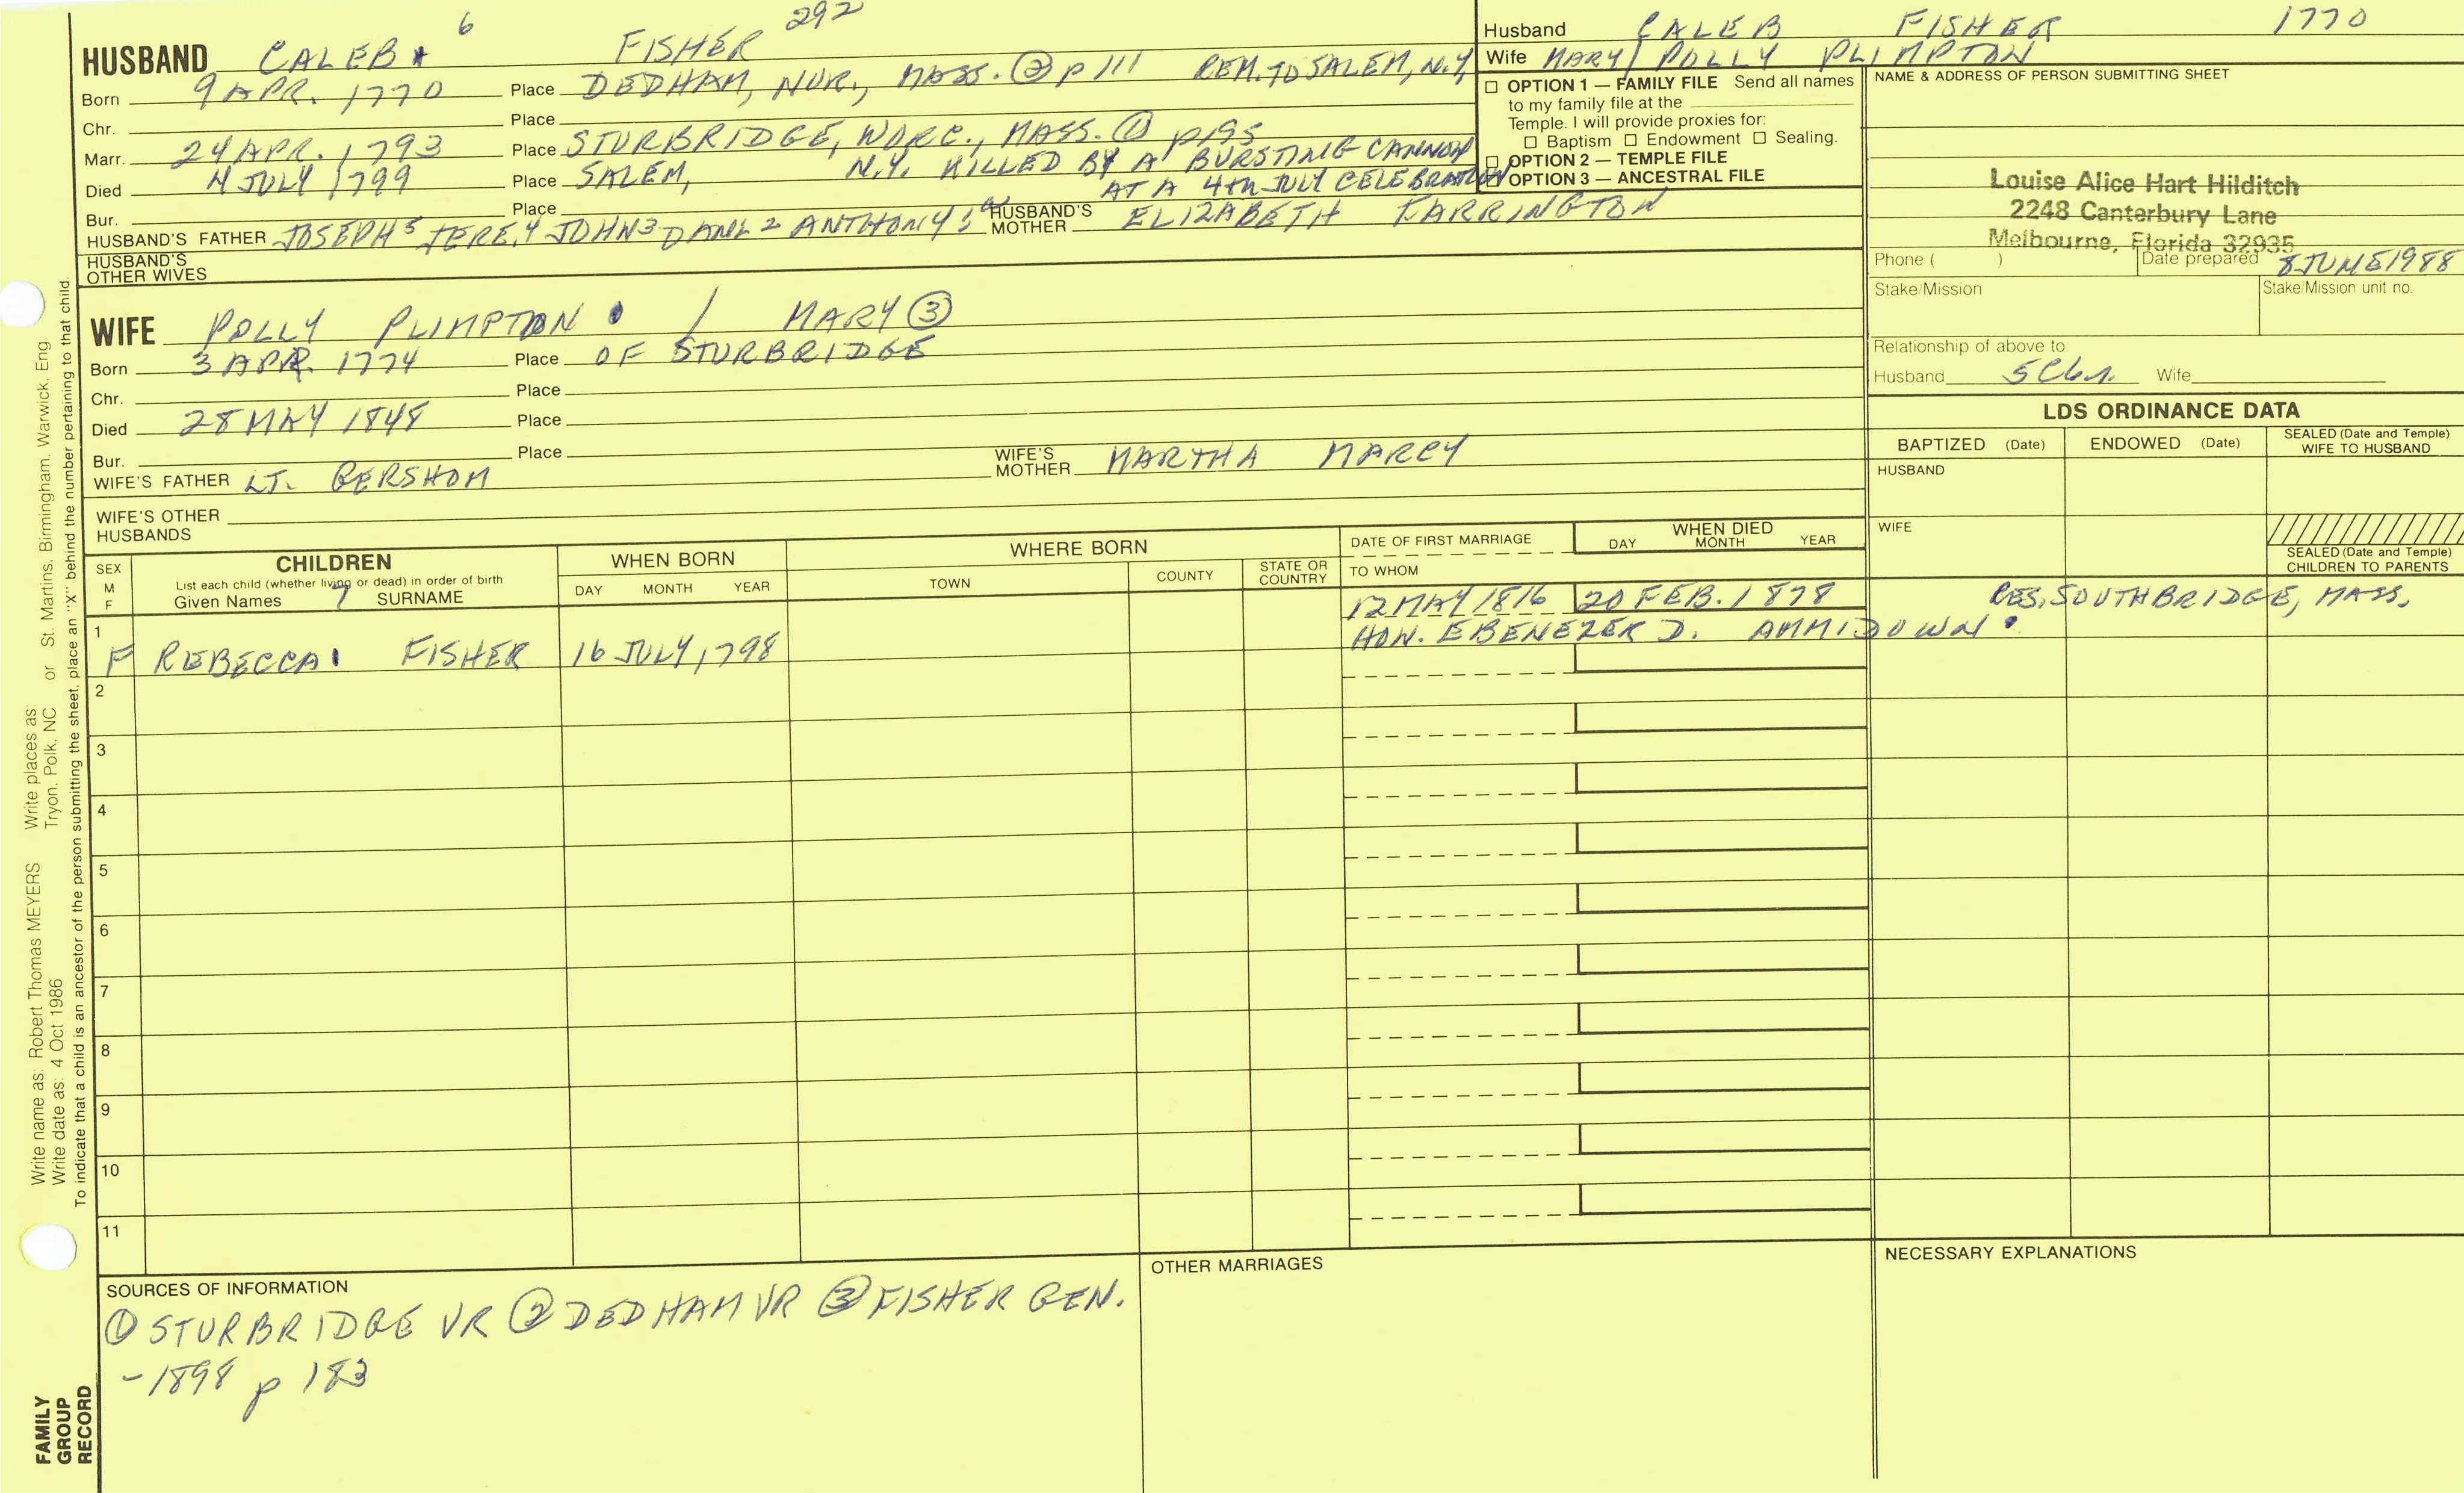 HUSBAND CALEB 6 FISHER 292
Born 9 APR. 1770 Place DEDHAM, NOR., MASS. ② p 111 REM. TO SALEM, N.Y.
Chr. Place
Marr. 24 APR. 1793 Place STURBRIDGE, WORC., MASS. ① p195
Died 4 JULY 1799 Place SALEM, N.Y. KILLED BY A BURSTING CANNON
AT A 4th JULY CELEBRATION
Bur. Place
HUSBAND'S FATHER JOSEPH 5 JERE. 4 JOHN 3 DANL 2 ANTHONY 1 HUSBAND'S MOTHER ELIZABETH FARRINGTON
HUSBAND'S OTHER WIVES
WIFE POLLY PLIMPTON / MARY ③
Born 3 APR. 1774 Place OF STURBRIDGE
Chr. Place
Died 28 MAY 1848 Place
Bur. Place
WIFE'S FATHER LT. GERSHOM WIFE'S MOTHER MARTHA MARCY
WIFE'S OTHER HUSBANDS
Husband CALEB FISHER 1770
Wife MARY / POLLY PLIMPTON
☐ OPTION 1 — FAMILY FILE Send all names
to my family file at the
Temple. I will provide proxies for:
☐ Baptism ☐ Endowment ☐ Sealing.
☐ OPTION 2 — TEMPLE FILE
☐ OPTION 3 — ANCESTRAL FILE
NAME & ADDRESS OF PERSON SUBMITTING SHEET
Louise Alice Hart Hilditch
2248 Canterbury Lane
Melbourne, Florida 32935
Phone ( ) Date prepared 8 JUNE 1988
Stake/Mission Stake/Mission unit no.
Relationship of above to
Husband 5C6r. Wife
LDS ORDINANCE DATA
BAPTIZED (Date) ENDOWED (Date) SEALED (Date and Temple) WIFE TO HUSBAND
HUSBAND
WIFE
SEALED (Date and Temple) CHILDREN TO PARENTS
SEX M F
CHILDREN
List each child (whether living or dead) in order of birth
Given Names 7 SURNAME
WHEN BORN
DAY MONTH YEAR
WHERE BORN
TOWN COUNTY STATE OR COUNTRY
DATE OF FIRST MARRIAGE
TO WHOM
WHEN DIED
DAY MONTH YEAR
1 F REBECCA FISHER 16 JULY 1798 12 MAY 1816 20 FEB. 1878 RES. SOUTHBRIDGE, MASS.
HON. EBENEZER D. AMMIDOWN
2
3
4
5
6
7
8
9
10
11
SOURCES OF INFORMATION
① STURBRIDGE VR ② DEDHAM VR ③ FISHER GEN.
-1898 p 183
OTHER MARRIAGES
NECESSARY EXPLANATIONS
Write name as: Robert Thomas MEYERS Write places as:
Write date as: 4 Oct 1986 Tryon, Polk, NC or St. Martins, Birmingham, Warwick, Eng.
To indicate that a child is an ancestor of the person submitting the sheet, place an "X" behind the number pertaining to that child.
FAMILY
GROUP
RECORD